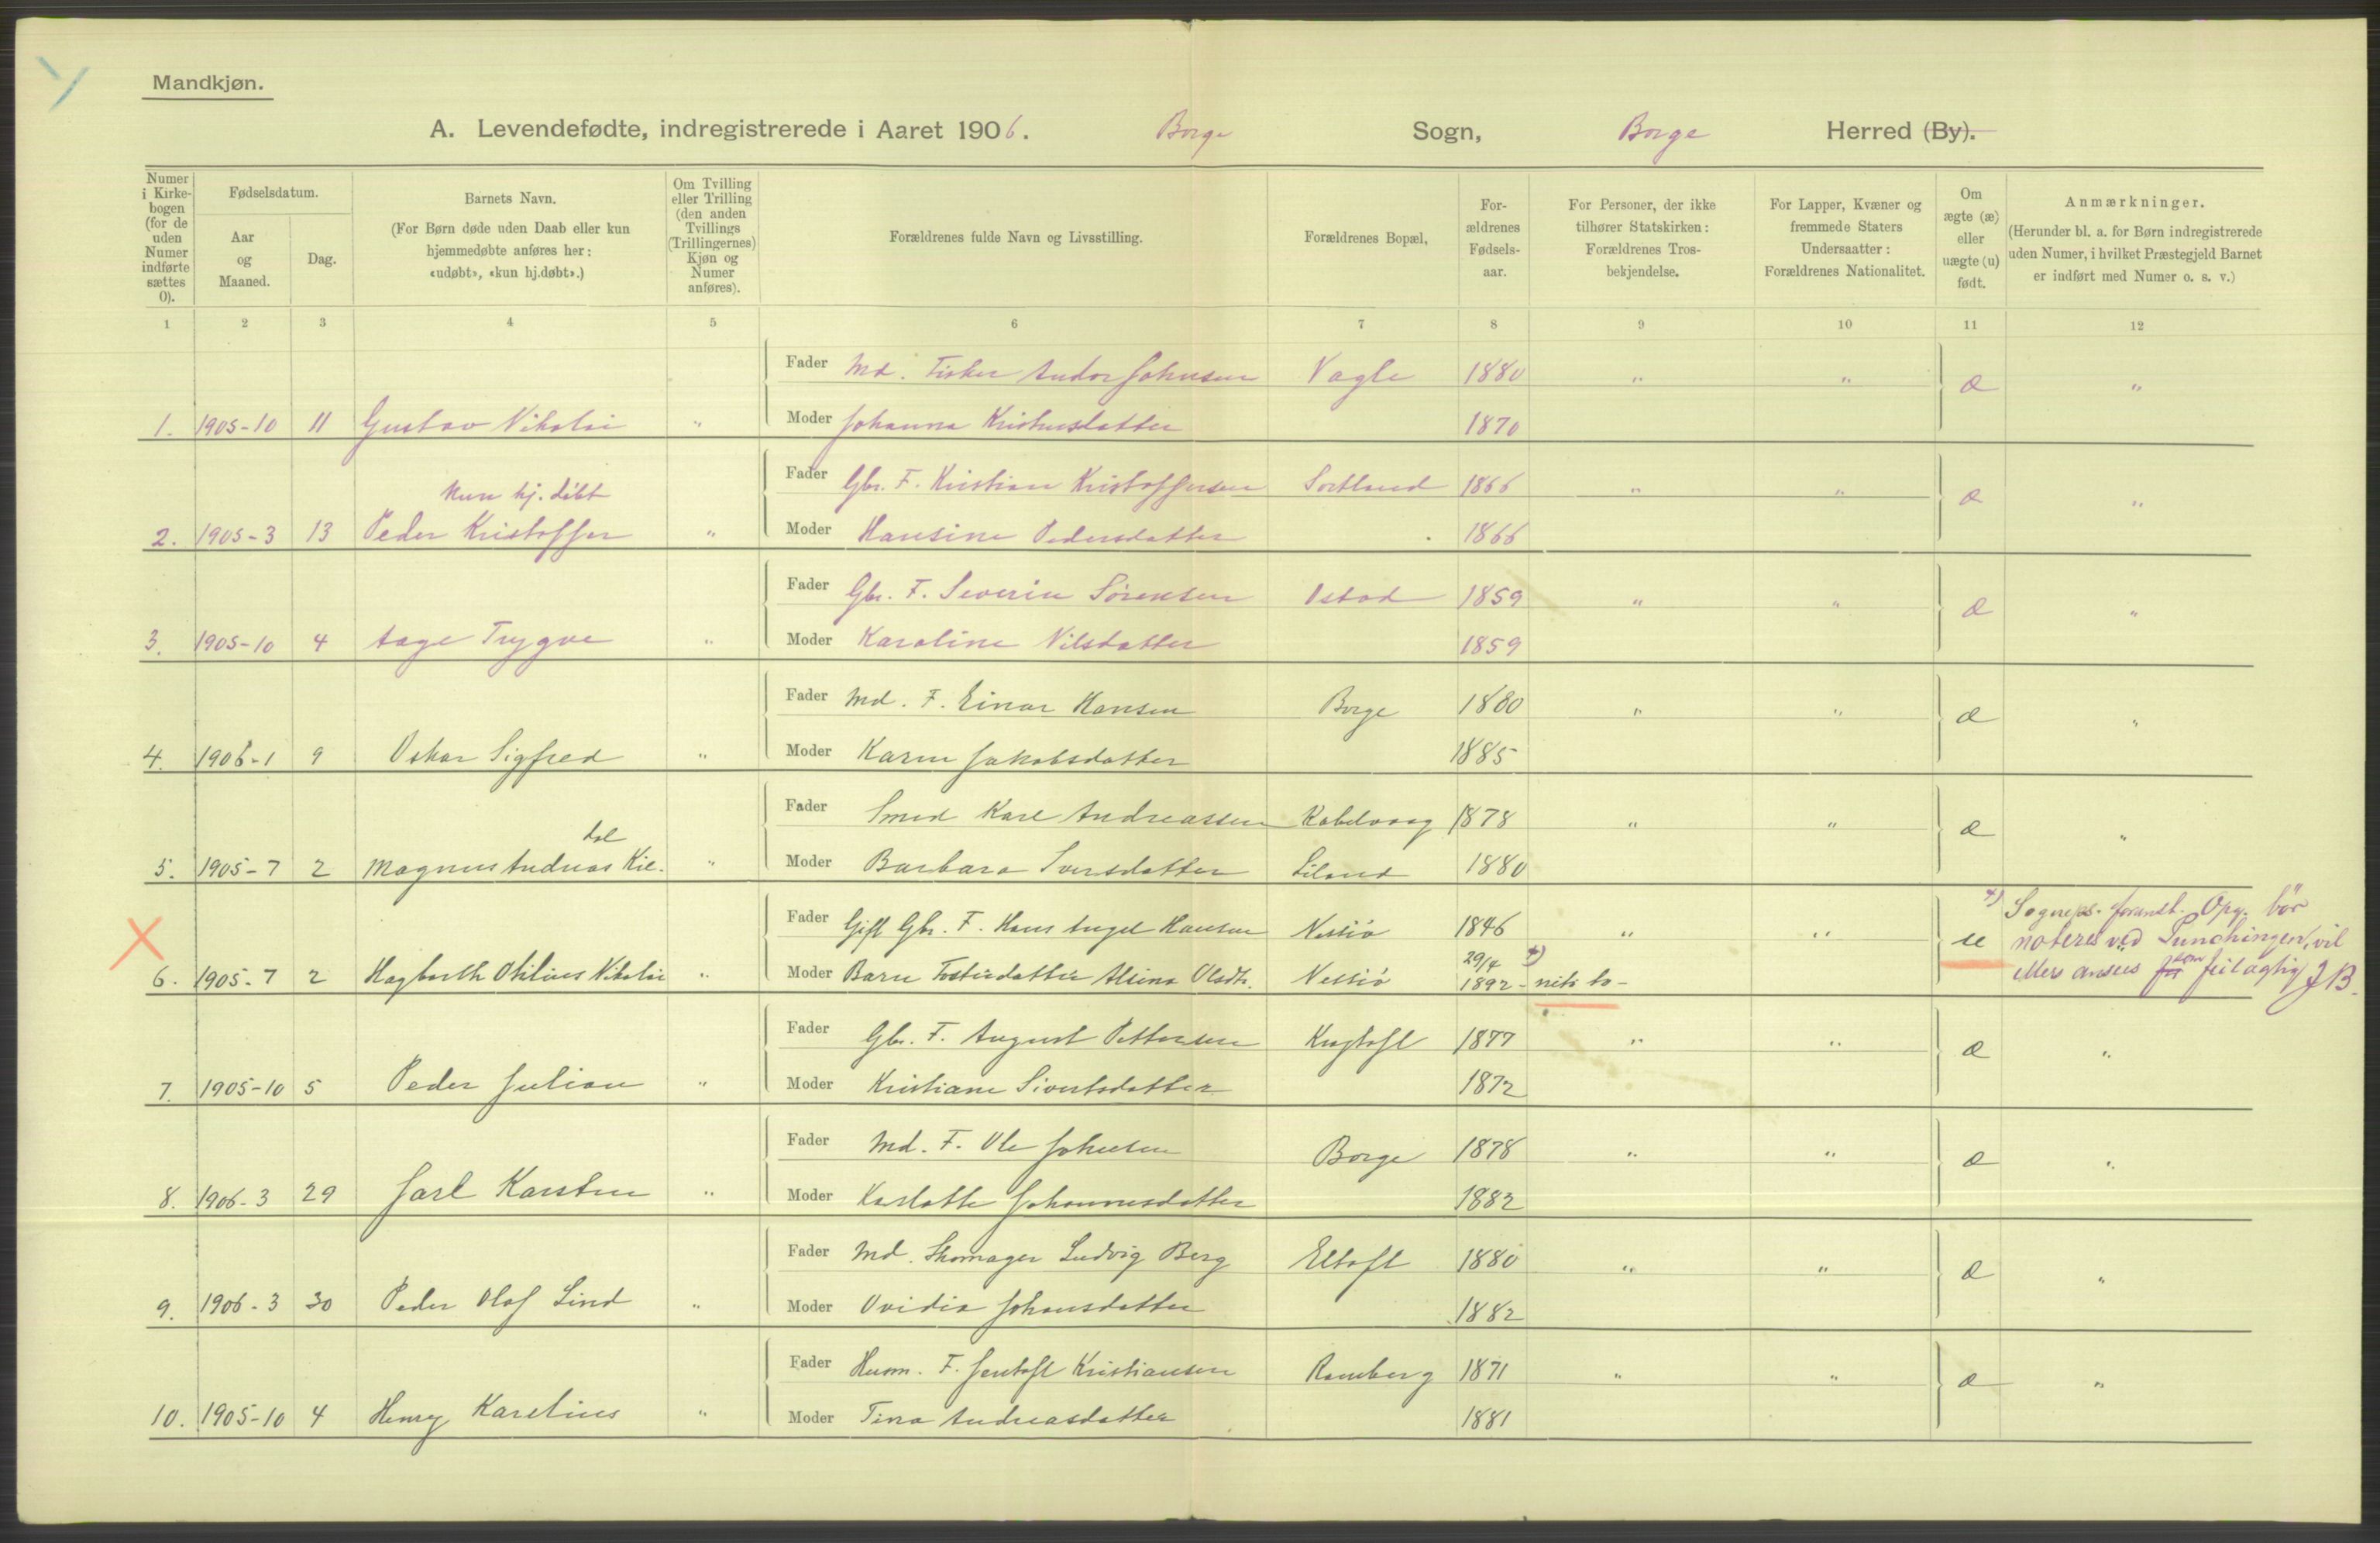 Mandkjøn.
A. Levendefødte, indregistrerede i Aaret 1906. Borge Sogn, Borge Herred (By).
Numer i Kirke-bogen (for de uden Numer indførte sættes 0).
Fødselsdatum.
Aar og Maaned.
Dag.
Barnets Navn.
(For Børn døde uden Daab eller kun hjemmedøbte anføres her: «udøbt», «kun hj.døbt».)
Om Tvilling eller Trilling (den anden Tvillings (Trillingernes) Kjøn og Numer anføres).
Forældrenes fulde Navn og Livsstilling.
Forældrenes Bopæl,
For-ældrenes Fødsels-aar.
For Personer, der ikke tilhører Statskirken: Forældrenes Tros-bekjendelse.
For Lapper, Kvæner og fremmede Staters Undersaatter: Forældrenes Nationalitet.
Om ægte (æ) eller uægte (u) født.
Anmærkninger.
(Herunder bl. a. for Børn indregistrerede uden Numer, i hvilket Præstegjeld Barnet er indført med Numer o. s. v.)
1 2 3 4 5 6 7 8 9 10 11 12
Fader Md. Fisker Andor Johnsen Vagle 1880 " " æ "
1. 1905-10 11 Gustav Nikolai " Moder Johanna 1870
Fader Gbr. F. Kristian Kristoffersen Sortland 1866 " " æ "
kun hj. døbt
2. 1905-3 13 Peder Kristoffer " Moder Hansine Pedersdatter 1866
Fader Gbr. F. Severin Sørensen Istad 1859 " " æ "
3. 1905-10 4 Aage Trygve " Moder Karoline Nilsdatter 1859
Fader Md. F. Einar Hansen Borge 1880 " " æ "
4. 1906-1 9 Oskar Sigfred " Moder Karen Jakobsdatter 1885
Fader Smed Karl Andreassen Kabelvaag 1878 " " æ "
dal
5. 1905-7 2 Magnus Andreas Kil. " Moder Barbara Iversdatter Liland 1880
Fader Gift Gbr. F. Hans Angel Hansen Nessiø 1846 " " u
x) foranst. Opg. bör
noteres ved Punchingen, vil
ellers ansees for som feilagtig JB.
29/4 x)
6. 1905-7 2 Hagbarth Otilius Nikolai " Moder Barn Fosterdatter Alvina Olsdtr. Nessiø 1892 - niti to -
Fader Gbr. F. August Pettersen Kugtoft 1877 " " æ "
7. 1905-10 5 Peder Julian " Moder Kristiane Sivertsdatter 1872
Fader Md. F. Ole Johnsen Borge 1878 " " æ "
8. 1906-3 29 Jarl Karsten " Moder Karlotte Johannesdatter 1882
Fader Md. Skomager Ludvig Berg Eltoft 1880 " " æ "
9. 1906-3 30 Peder Olaf Lind " Moder Ovidia Johansdatter 1882
Fader Husm. F. Jentoft Kristiansen Ramberg 1871 " " æ "
10. 1905-10 4 Henry Karelius " Moder Tina Andreasdatter 1881